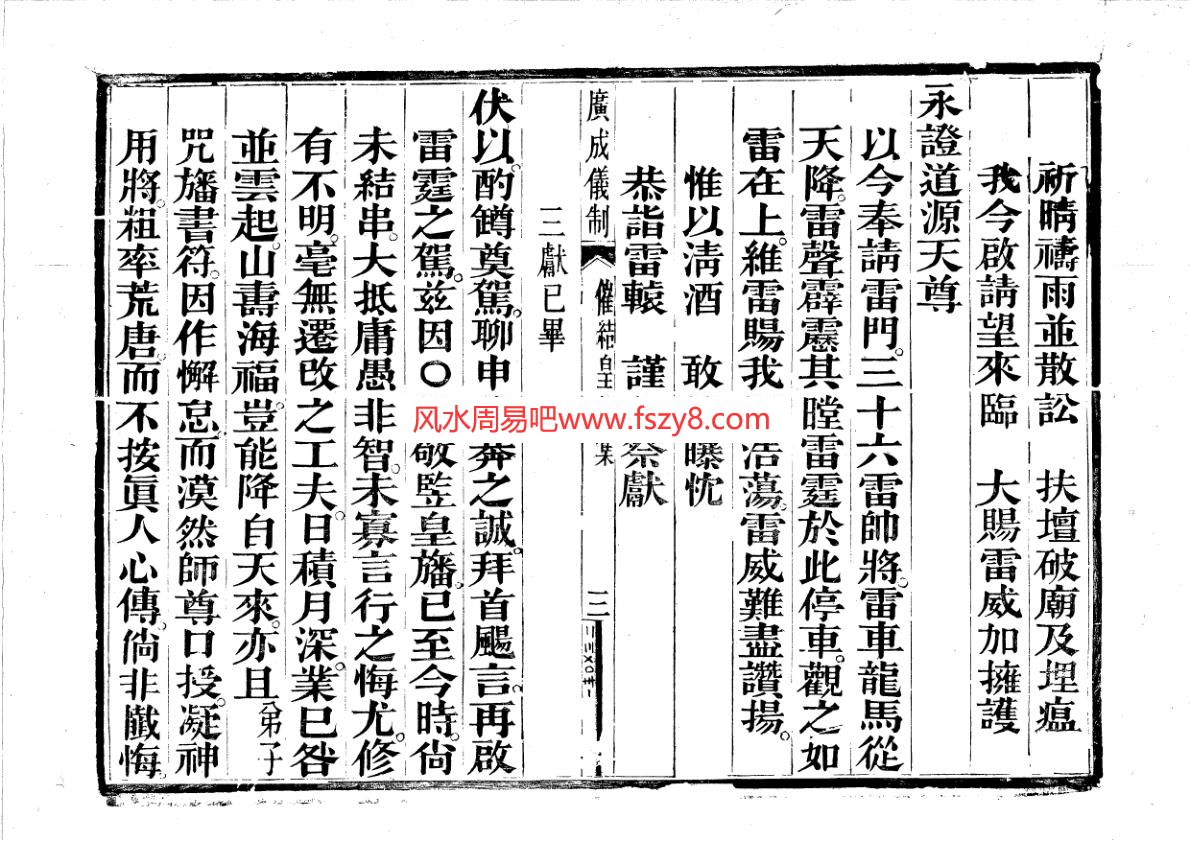 祈晴禱雨並散訟　扶壇破廟及埋瘟
我今啟請望來臨　大賜雷威加擁護
永證道源天尊
以今奉請雷門。三十六雷帥將。雷車龍馬從
天降。雷聲霹靂其瞠雷霆於此停車。觀之如
雷在上。維雷賜我浩蕩。雷威難盡讚揚。
惟以清酒　敢曝忱
恭詣雷轅　謹祭獻
廣成儀制　催結皇
三
三獻已畢
伏以。酌罇奠駕。聊申奔之誠。拜首颺言。再啟
雷霆之駕。茲因〇敬監皇旛。已至今時。尙
未結串。大抵庸愚非智。未寡言行之悔尤。修
有不明。毫無遷改之工夫。日積月深。業已咎
並雲起。山壽海福。豈能降自天來。亦且弟子
咒旛書符。因作懈怠。而漠然師尊口授。凝神
用將。粗率荒唐。而不按眞人心傳。倘非懺悔。
风水周易吧www.fszy8.com